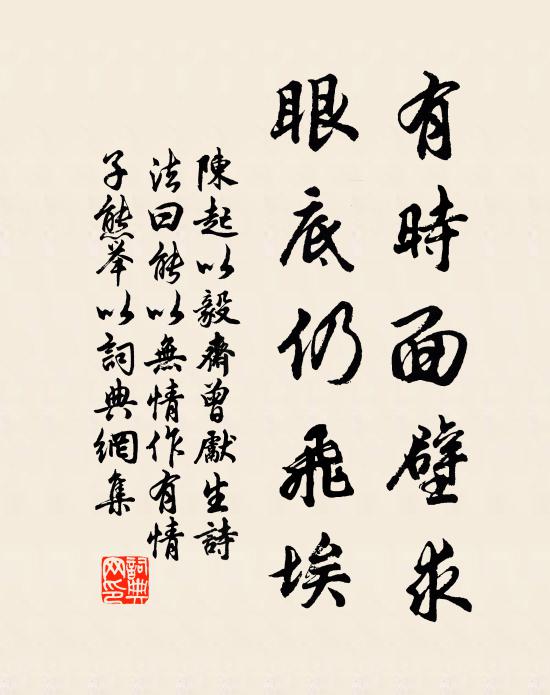 有時面壁求
眼底仍飛埃
陳起以毅齋曾獻生詩
法曰能以無情作有情
子熊举以詞典網集
詞典
网印